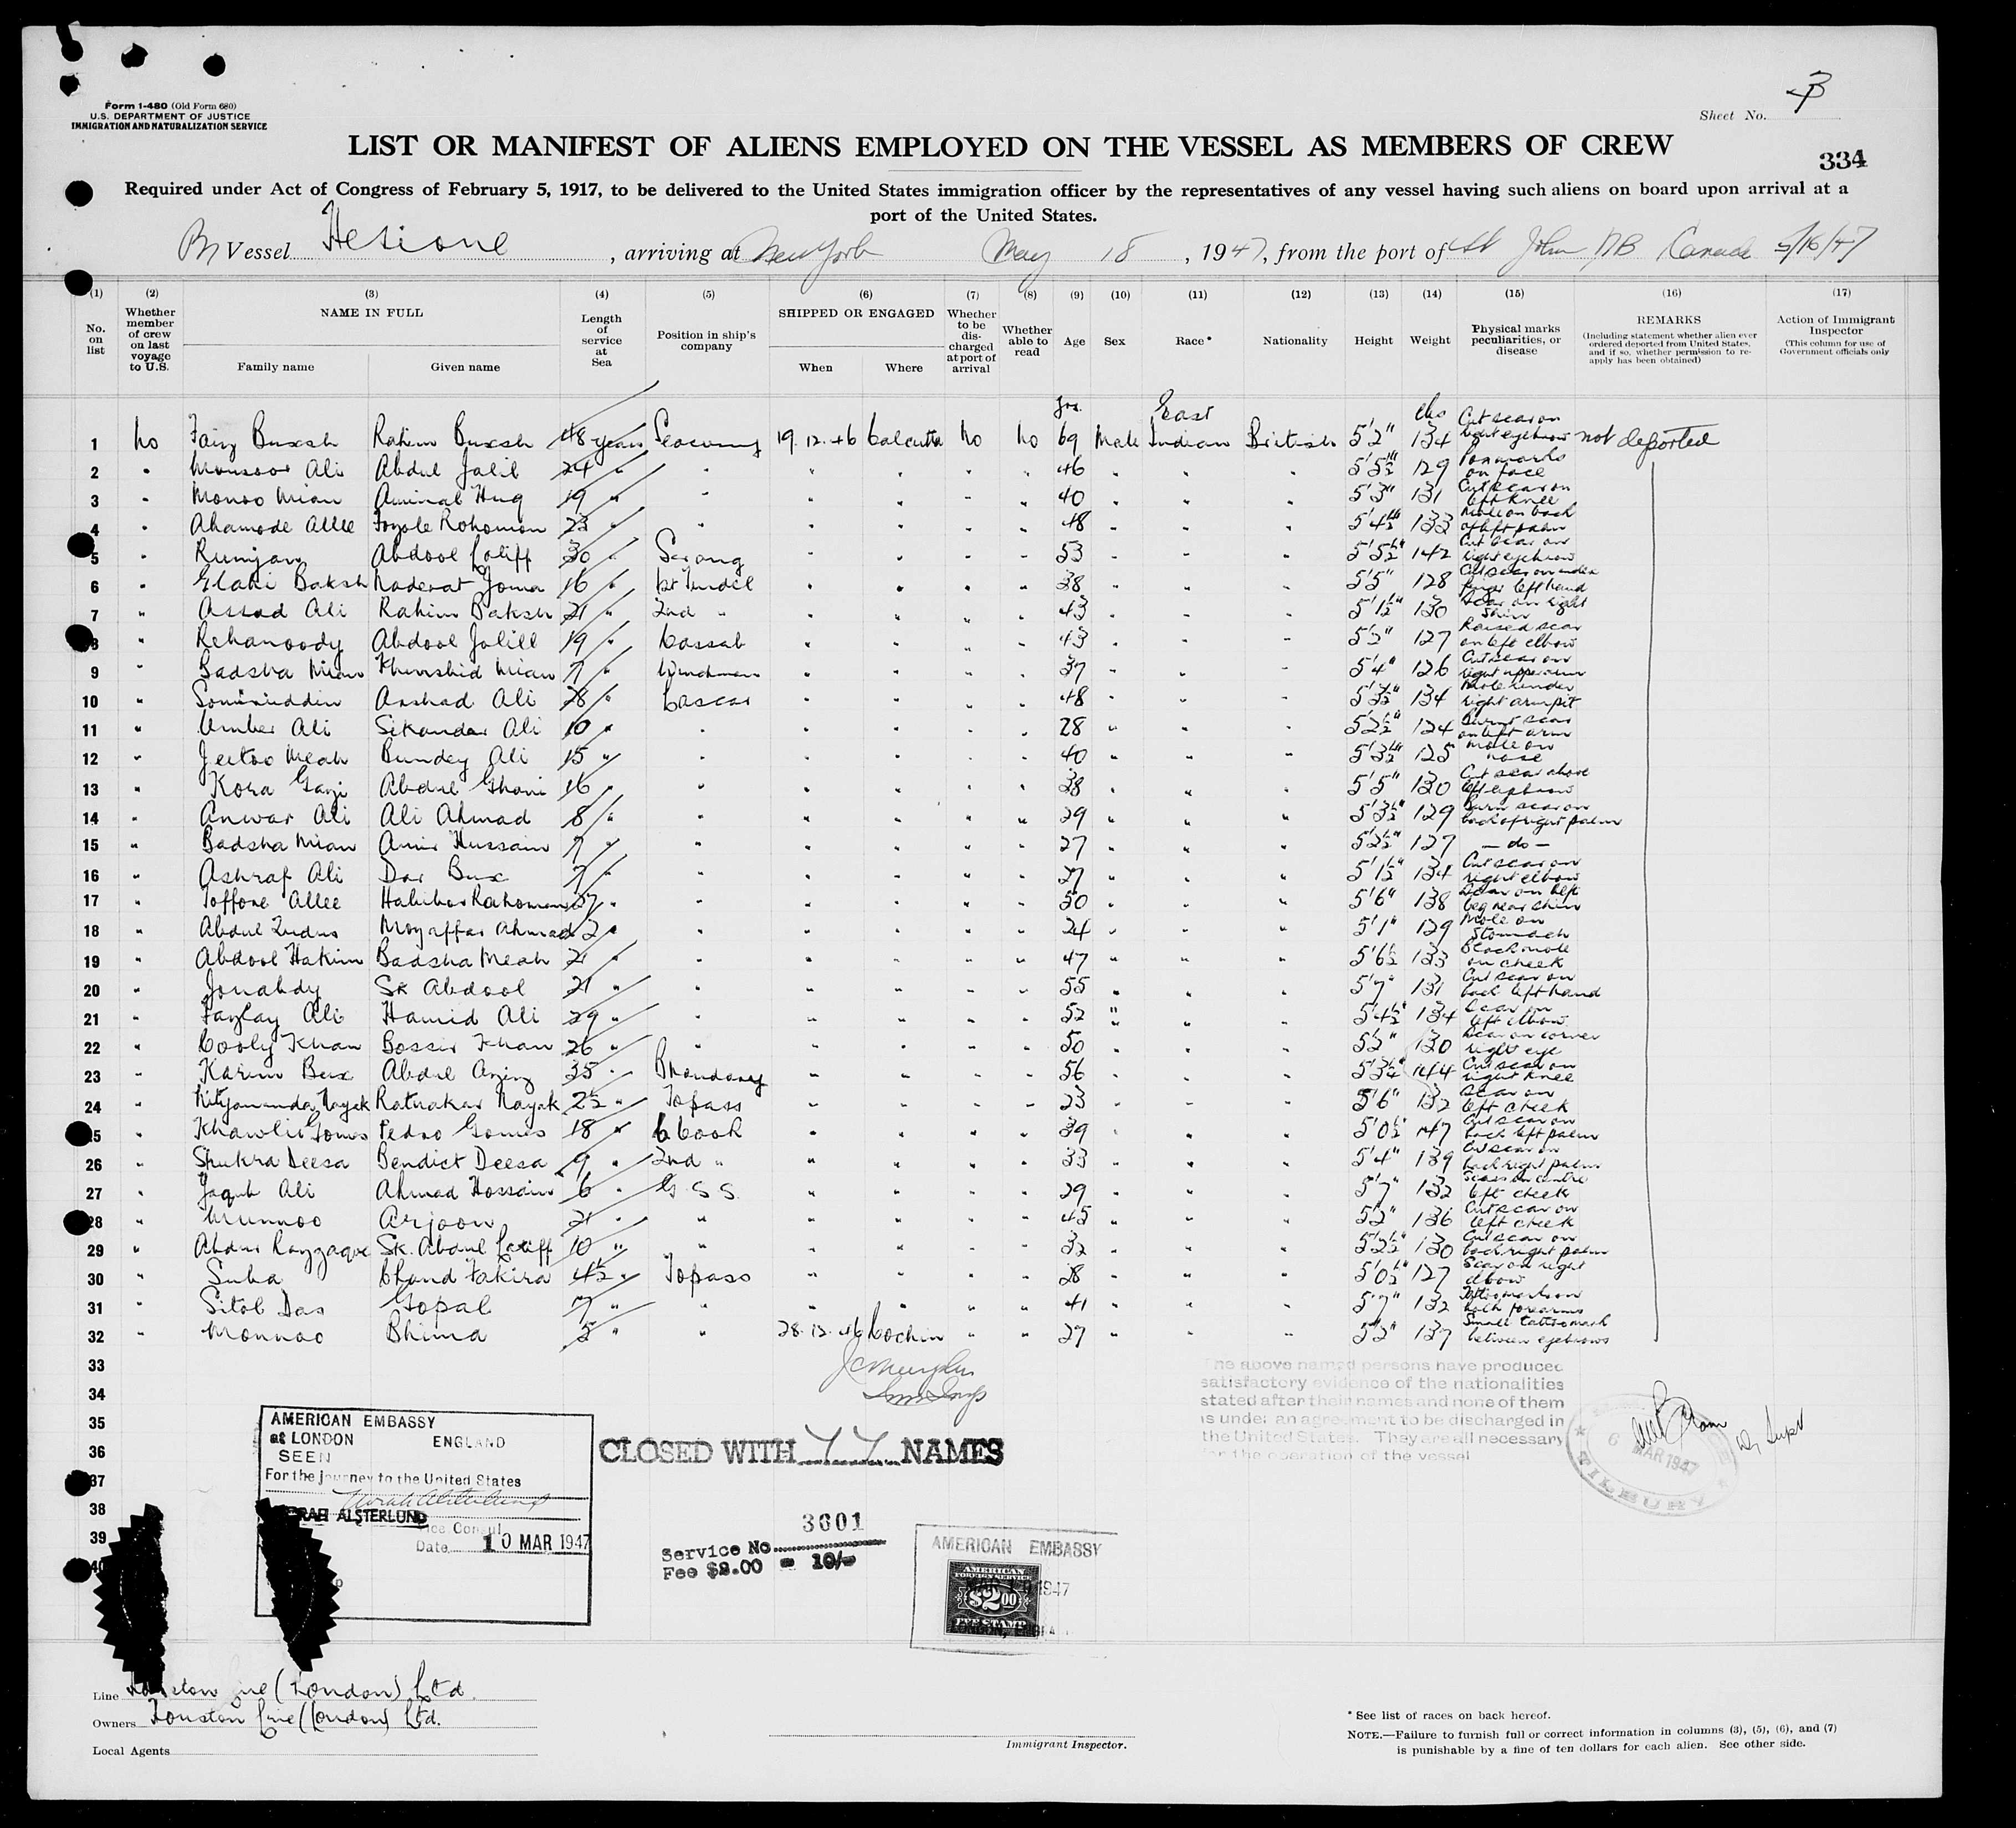 Form I-480 (Old Form 680)
U.S. DEPARTMENT OF JUSTICE
IMMIGRATION AND NATURALIZATION SERVICE
Sheet No. 3
LIST OR MANIFEST OF ALIENS EMPLOYED ON THE VESSEL AS MEMBERS OF CREW
334
Required under Act of Congress of February 5, 1917, to be delivered to the United States immigration officer by the representatives of any vessel having such aliens on board upon arrival at a
port of the United States.
Vessel Hesione, arriving at New York May 18, 1947, from the port of St John NB Canada 5/16/47
(1) (2) (3) (4) (5) (6) (7) (8) (9) (10) (11) (12) (13) (14) (15) (16) (17)
No. on list
Whether member of crew on last voyage to U.S.
NAME IN FULL
Family name Given name
Length of service at Sea
Position in ship's company
SHIPPED OR ENGAGED
When Where
Whether to be discharged at port of arrival
Whether able to read
Age
Sex
Race*
Nationality
Height
Weight
Physical marks peculiarities, or disease
REMARKS
(Including statement whether alien ever ordered deported from United States, and if so, whether permission to re-apply has been obtained)
Action of Immigrant Inspector
(This column for use of Government officials only
1 no Faiz Buxsh Rahim Buxsh 48 years 19.12.46 Calcutta no no 69 Male East Indian British 5'2" 134 Cut scar on right eyebrow not deported
2 " Monsoor Ali Abdul Jalil 24 " " " " " " 46 " " " 5'5½" 129 Poxmarks on face
3 " Monoo Mian Aminal Huq 19 " " " " " " 40 " " " 5'3" 131 Cut scar on left knee
4 " Ahamode Allee Fozole Rohomon 23 " " " " " " 48 " " " 5'4½" 133 Mole on back of left palm
5 " Rumjan Abdool Latiff 30 " Serang " " " " 53 " " " 5'5½" 142 Cut scar on right eyebrow
6 " Elahi Baksh Naderat Joma 16 " 1st Tindil " " " " 38 " " " 5'5" 128 Cut scar on index finger left hand
7 " Assad Ali Rahim Baksh 21 " 2nd " " " " " 43 " " " 5'1½" 130 Scar on right shin
8 " Rehanoody Abdool Jolill 19 " Cassab " " " " 43 " " " 5'3" 127 Raised scar on left elbow
9 " Badsha Mian Khurshid Mian 7 " Winchman " " " " 37 " " " 5'4" 126 Cut scar on right upper arm
10 " Somiruddin Arshad Ali 28 " Lascar " " " " 48 " " " 5'3½" 134 Mole under right armpit
11 " Umber Ali Sikandar Ali 10 " " " " " " 28 " " " 5'2½" 124 Burnt scar on left arm
12 " Jeetoo Meah Bundey Ali 15 " " " " " " 40 " " " 5'3½" 125 Mole on nose
13 " Kora Gazi Abdul Ghani 16 " " " " " " 38 " " " 5'5" 130 Cut scar above left eyebrow
14 " Anwar Ali Ali Ahmad 8 " " " " " " 29 " " " 5'3½" 129 Burn scar on back of right palm
15 " Badsha Mian Amir Hussain 7 " " " " " " 27 " " " 5'2½" 127 — do —
16 " Ashraf Ali Dar Bux 7 " " " " " " 27 " " " 5'1½" 134 Cut scar on right elbow
17 " Toffore Allee Habibor Rohoman " " " " " " 50 " " " 5'6" 138 Scar on left leg near shin
18 " Abdul Mozaffar Ahmad 2 " " " " " " 24 " " " 5'1" 129 Mole on Stomach
19 " Abdool Hakim Badsha Meah 21 " " " " " " 47 " " " 5'6½ 133 Black mole on cheek
20 " Jonabdy Sk Abdool 21 " " " " " " 55 " " " 5'7" 131 Cut scar on back left hand
21 " Fazlay Ali Hamid Ali 29 " " " " " " 52 " " " 5'4½" 134 Scar on left elbow
22 " Cooly Khan Bossir Khan 26 " " " " " " 50 " " " 5'3" 130 Scar on corner right eye
23 " Karim Bux Abdul Aziz 35 " Bhandary " " " " 56 " " " 144 Cut scar on right knee
24 " Nityananda Nayak Ratnakar Nayak 2½ " Topass " " " " 23 " " " 5'6" 132 Scar on left cheek
25 " Gomes Pedro Gomes 18 " Cook " " " " 39 " " " 5'0½" 147 Cut scar on back left palm
26 " Shukra Deesa Bendict Deesa 9 " 2nd " " " " " 33 " " " 5'4" 139 Cut scar on back right palm
27 " Jaqub Ali Ahmad Hossain 6 " G S S. " " " " 29 " " " 5'7" 132 left cheek
28 " Munnoo Arjoon 21 " " " " " " 45 " " " 5'2" 136 Cut scar on left cheek
29 " Abdur Razzaque Sk. Abdul Latiff 10 " " " " " " 32 " " " 5'2½" 130 Cut scar on back right palm
30 " Suba Chand Fakira 4½ " Topass " " " " 28 " " " 5'0½" 127 Scar on right elbow
31 " Sitol Das Gopal 7 " " " " " " 41 " " " 5'7" 132 Tattoo marks on both forearms
32 " Monnoo Bhima 5 " " 28.12.46 Cochin " " 27 " " " 5'2" 137 Small tattoo mark between eyebrows
33
34
35
36
37
38
39
40
The above named persons have produced
satisfactory evidence of the nationalities
stated after their names and none of them
is under an agreement to be discharged in
the United States. They are all necessary
for the operation of the vessel
6 MAR 1947
TILBURY
AMERICAN EMBASSY
at LONDON ENGLAND
SEEN
For the journey to the United States
ALSTERLUND
Vice Consul
Date 10 MAR 1947
CLOSED WITH 77 NAMES
Service No. 3601
Fee $2.00 = 10/-
AMERICAN EMBASSY
AMERICAN
FOREIGN SERVICE
$2.00
FEE STAMP
LONDON,
Line Houston Line (London) Ltd.
Owners Houston Line (London) Ltd.
Local Agents
Immigrant Inspector.
* See list of races on back hereof.
NOTE.—Failure to furnish full or correct information in columns (3), (5), (6), and (7)
is punishable by a fine of ten dollars for each alien. See other side.